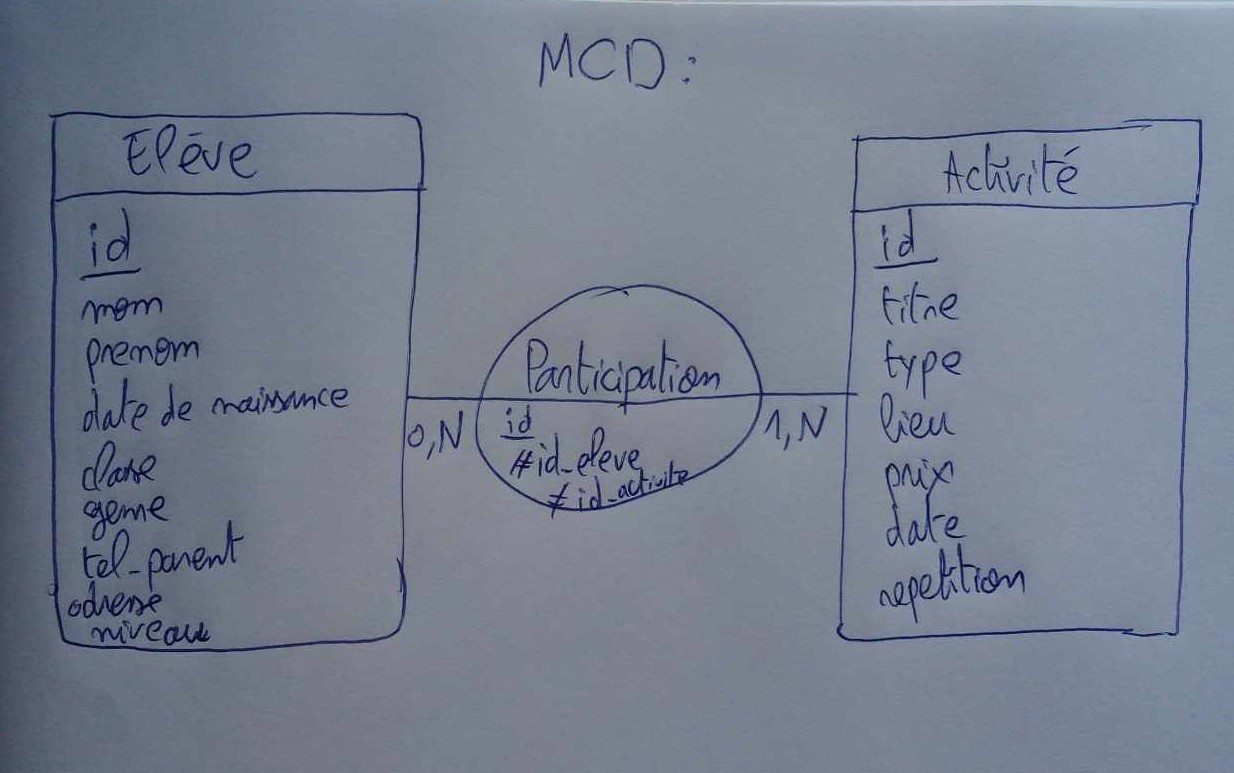 MCD:
Elève
id
nom
prenom
date de naissance
classe
genre
tel-parent
adresse
niveau
0,N
Participation
id
#id_eleve
#id_activite
1,N
Activité
id
titre
type
lieu
prix
date
repetition